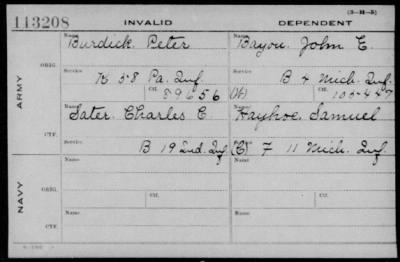 (3-H-5)
113208 INVALID DEPENDENT
Name Name
Burdick, Peter Bayou, John E.
ORIG.
Service Service
K 58 Pa. Inf. B 4 Mich. Inf.
Ctf. Ctf.
89656 (W) 105447
ARMY
Name Name
Sater, Charles C. Hayhoe, Samuel
CTF.
B 19 Ind. Inf. (C) F 11 Mich. Inf.
Name Name
ORIG.
Service Ctf. Service Ctf.
NAVY
Name Name
CTF.